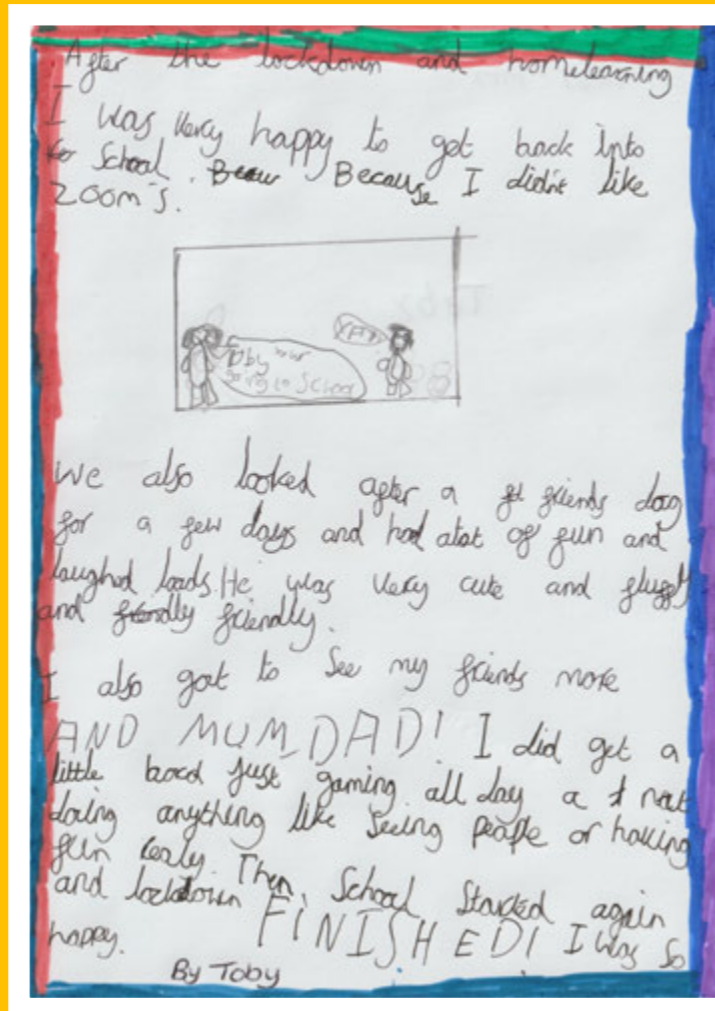 After the lockdown and homelearning
I was very happy to get back into
to School. Becau Because I didn't like
zoom's.
Toby your
going to School
We also looked after a friends dog
for a few days and had alot of fun and
laughed loads. He was very cute and fluffy
and friendly.
I also got to see my friends more
AND MUM, DAD! I did get a
little bord just gaming all day a not
doing anything like seeing people or having
fun realy. Then School Started again
and lockdown FINISHED! I was so
happy.
By Toby